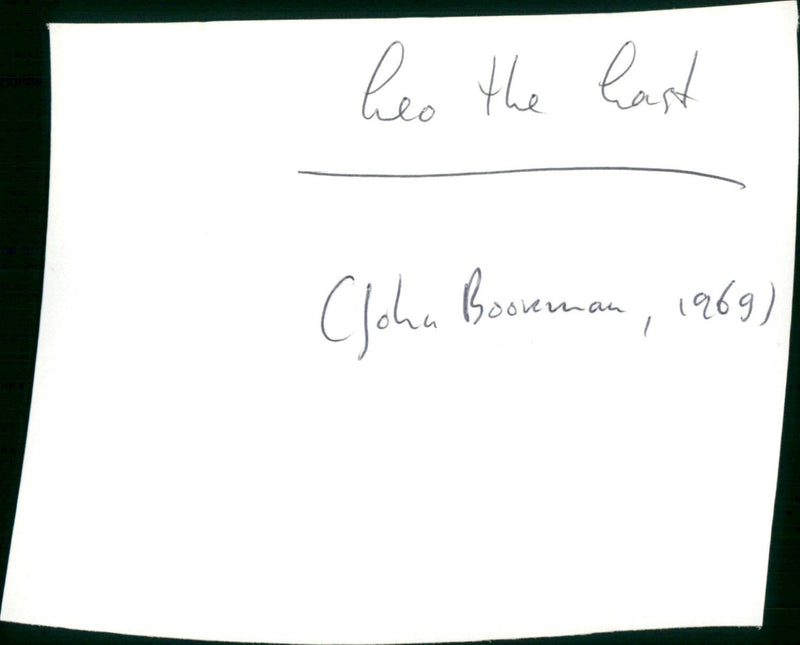 Leo the Last
(John Boorman, 1969)